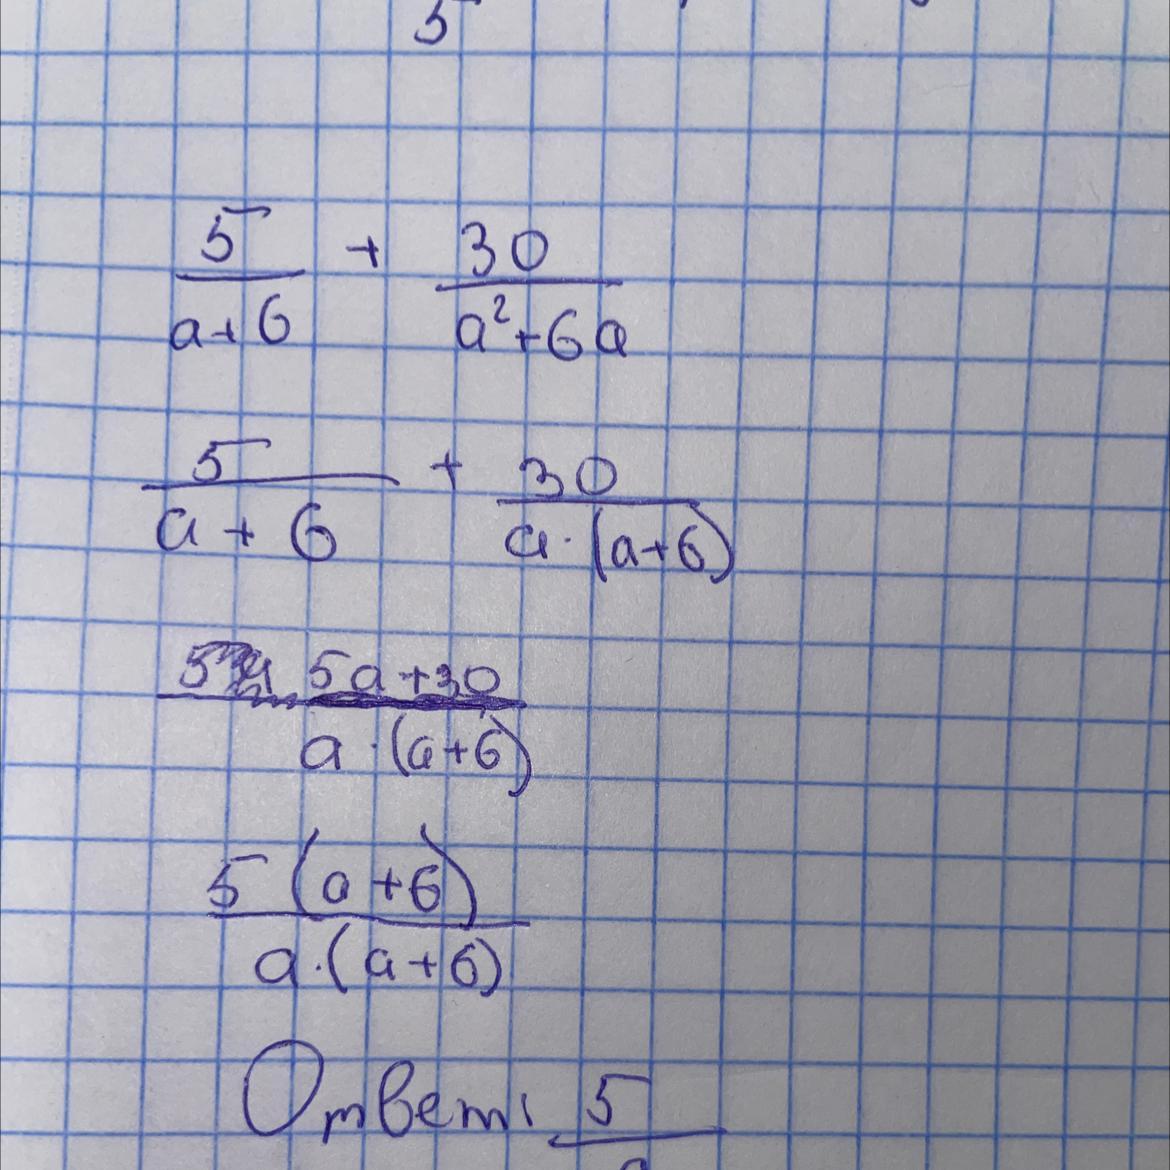 5
5/(a+6) + 30/(a²+6a)
5/(a+6) + 30/(a·(a+6))
5 (5a+30)/(a·(a+6))
5(a+6)/(a·(a+6))
Ответ: 5/a